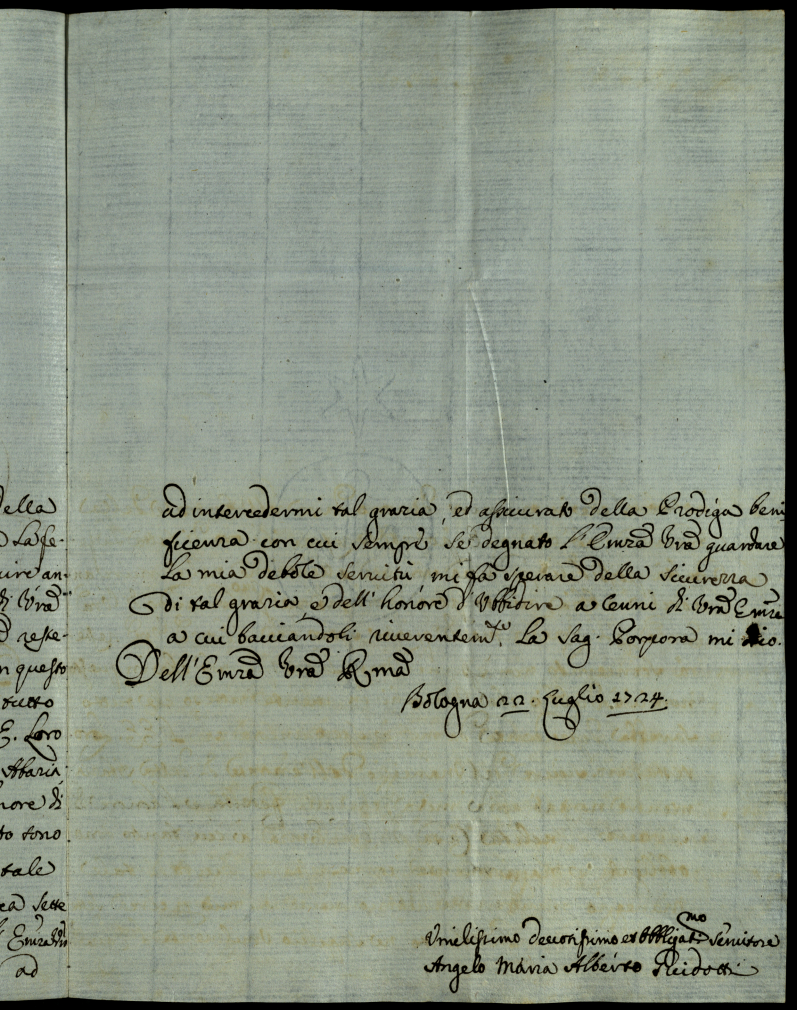 della
La fe-
uire an-
di Vrã
reste-
n questo
tutto
E. Loro
Abazia
nore di
to sono
tale
ea sette
Emza Vrã
ad
ad intercedermi tal grazia, ed assicurato della Prodiga beni
ficenza con cui sempre sè degnato l'Emzã Vrã guardare
La mia debole servitù mi fà sperare della sicurezza
di tal grazia e dell'honore d'Vbbidire a Cenni di Vrã Emze
a cui bacciandoli riverentem.te La Sag. Porpora mi dio.
Dell'Emzã Vrã Rmã
Bologna 22. Luglio 1724.
Vmilissimo devotissimo et Obbligatmo Servitore
Angelo Maria Alberto